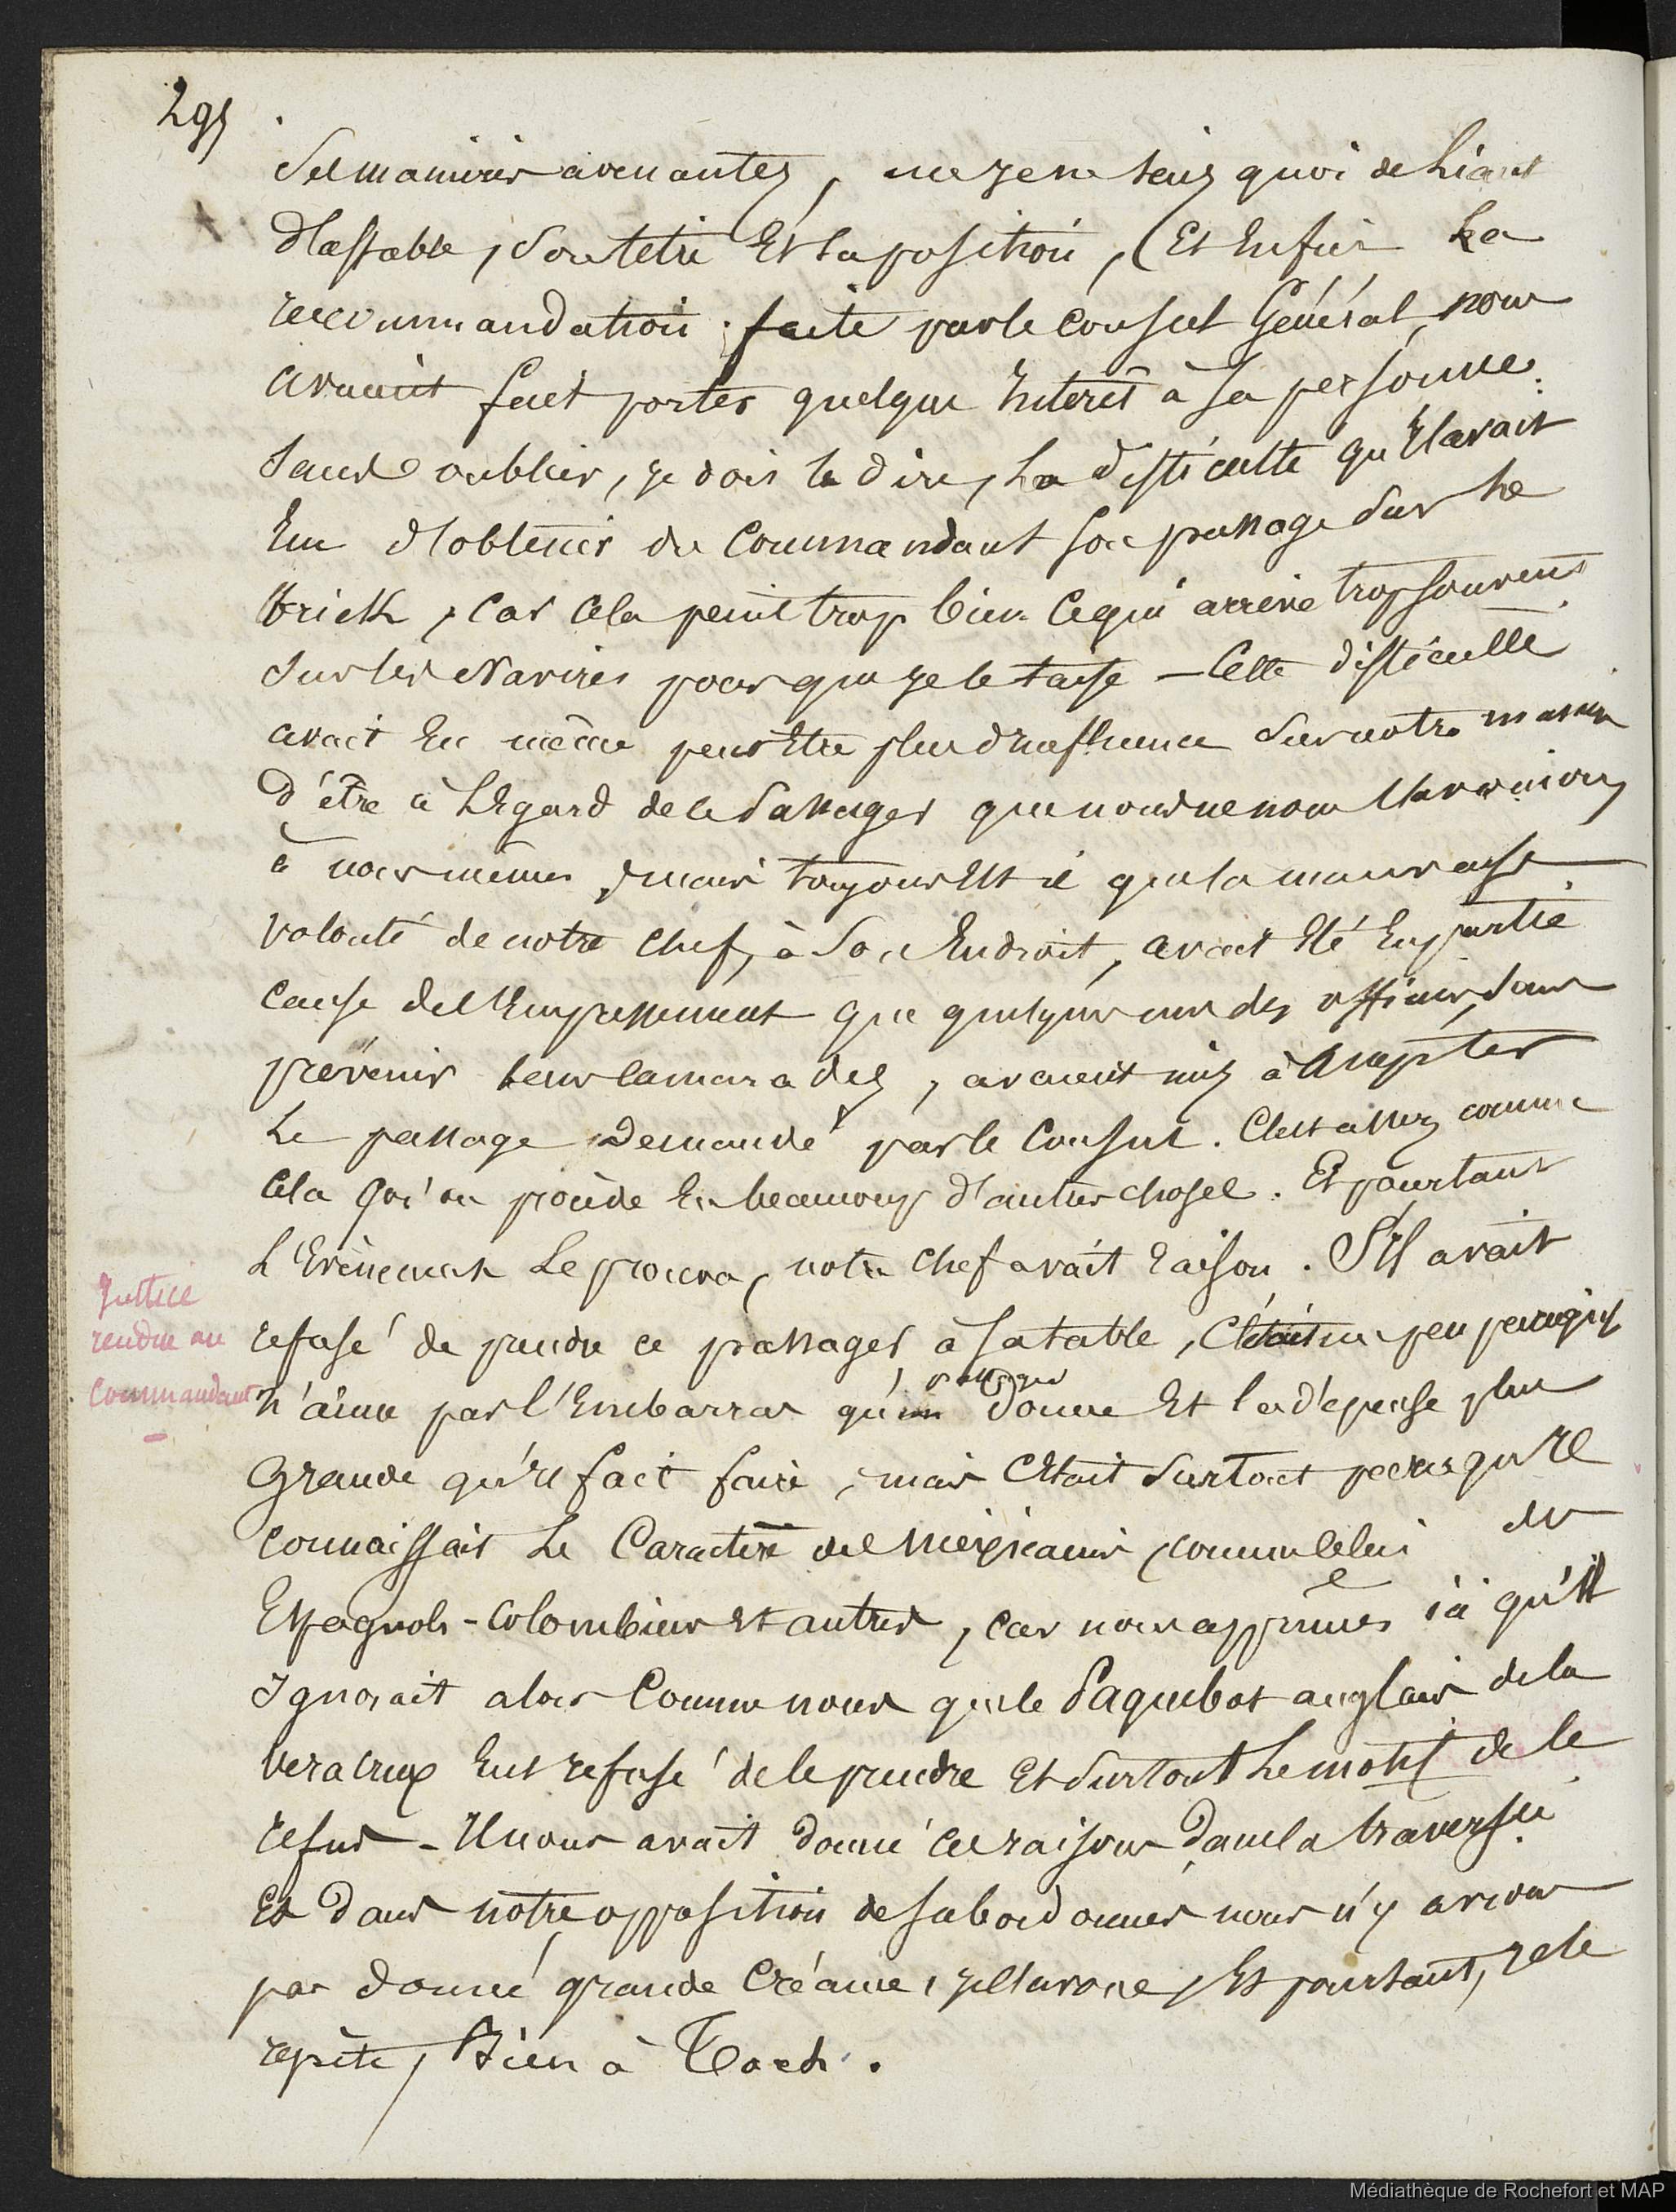 295
Ses manières avenantes, un je ne sais quoi de liant
d'affable, son titre Et sa position, Et Enfin La
recommandation faite par le Consul Général, nous
avaient fait porter quelque Interêt à sa personne.
Sans oublier, je dois le dire, La difficulté qu'Il avait
Eue d'obtenir du Commandant son passage sur Le
Brick, car cela peint trop bien Ce qui arrive trop souvent
sur les Navires pour que je le taise — Cette difficulté
avait Eu même peut Etre plus d'Influence sur notre manière
d'être à L'Egard de ce Passager que nous ne nous l'avouions
à nous mêmes, mais toujours Est il que la mauvaise
volonté de notre chef, à Son Endroit, avait Eté En partie
cause de l'Empressement que quelques uns des officiers, sans
prévenir Leurs Camarades, avaient mis à Accepter
Le passage Demandé par le Consul. C'est assez comme
Cela qu'on procède En beaucoup d'autres choses. Et pourtant
L'Evènement Le prouva, notre Chef avait raison. S'Il avait
refusé de prendre ce passager à sa table, C'était un peu parcequ'il
n'aime pas l'Embarras qu'un passager donne Et la dépense plus
Grande qu'Il fait faire, mais C'Etait Surtout parcequ'Il
connaissait Le Caractère des Mexicains, comme celui des
Espagnols-Colombiens Et autres, car nous apprîmes ici qu'Il
Ignorait alors Comme nous que le Paquebot anglais de la
Vera Crux Eut refusé de le prendre Et Surtout Le motif de ce
refus - Il nous avait donné ces raisons dans la traversée
Et dans notre opposition de subordonnés nous n'y avions
pas donné grande Créance, je l'avoue, Et pourtant, je le
répète, Bien à Tort.
Justice
rendue au
Commandant
Médiathèque de Rochefort et MAP